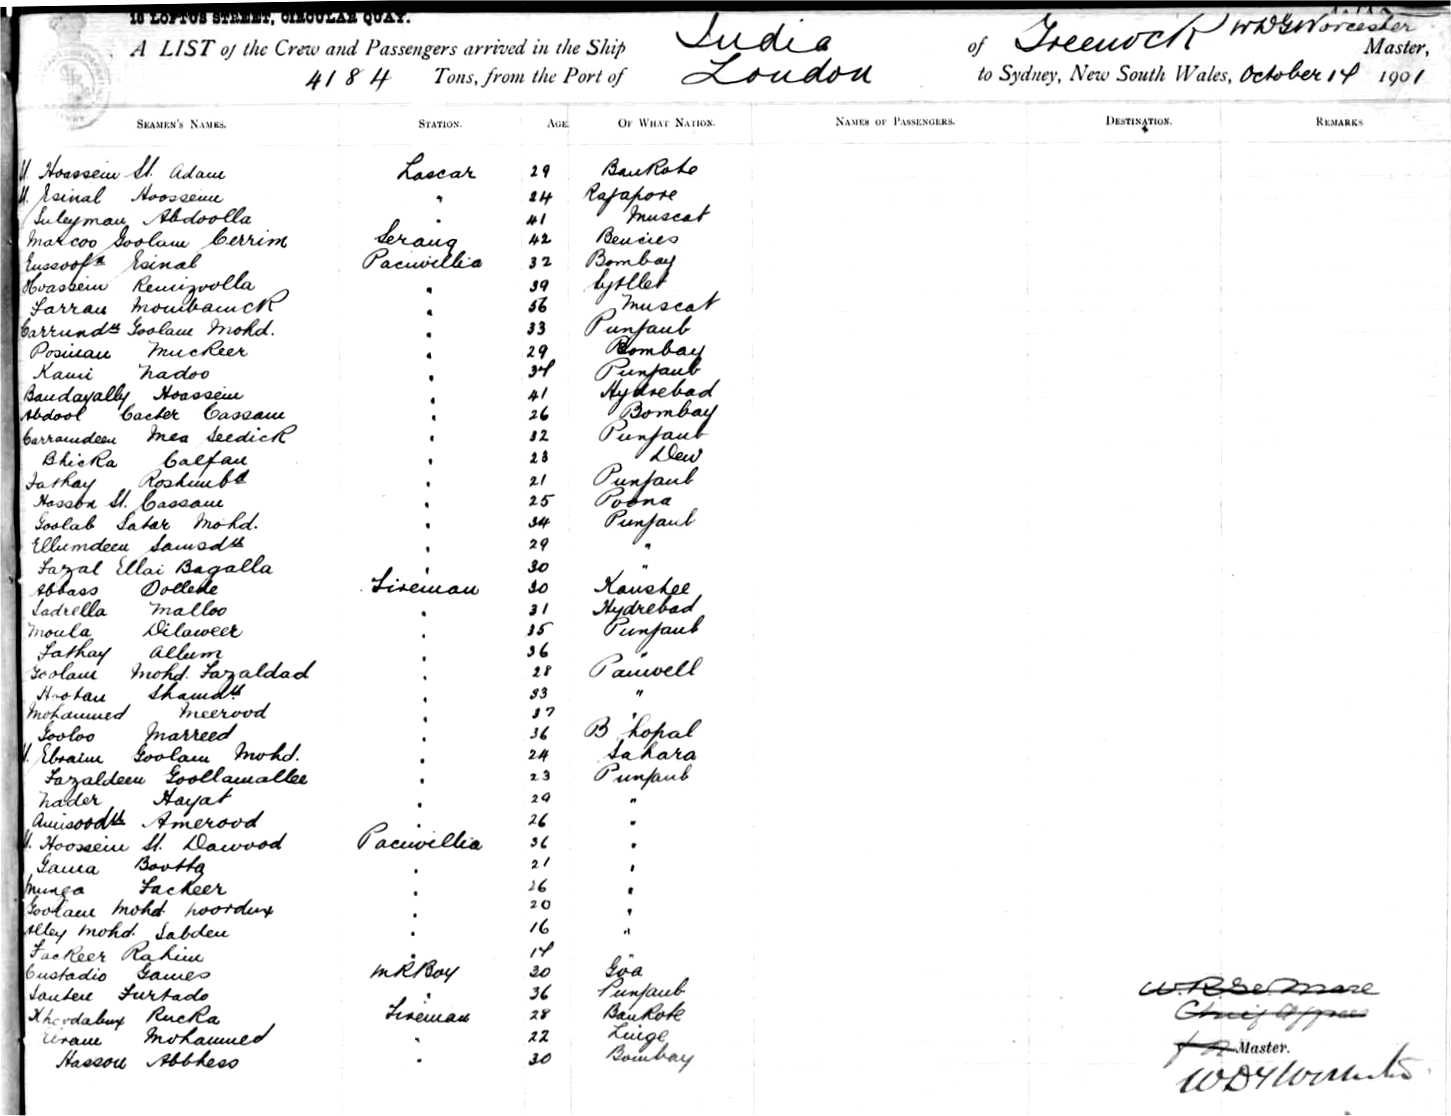 18 LOFTUS STREET, CIRCULAR QUAY.
A LIST of the Crew and Passengers arrived in the Ship India of Greenock W D G Worcester Master,
4184 Tons, from the Port of London to Sydney, New South Wales, October 14 1901
SEAMEN'S NAMES. STATION. AGE. OF WHAT NATION. NAMES OF PASSENGERS. DESTINATION. REMARKS
Hoassein St. Adam Lascar 29 Bankote
Esinal Hoossein " 24 Rajapore
Suleyman Abdoolla " 41 Muscat
Marcoo Goolam Cerrim Serang 42 Bencies
Esinal Pacuvillia 32 Bombay
Hoassein Remizoolla " 39 Syllet
Farran Mombarick " 36 Muscat
Goolam Mohd. " 33 Punjaub
Posman Muckeer " 29 Bombay
Kami Nadoo " 34 Punjaub
Bandayally Hoassein " 41 Hydrebad
Abdool Cacter Cassam " 26 Bombay
Carramdeen Mea Seedick " 32 Punjaub
Bhicka Calfan " 23 Dew
Fathay " 21 Punjaub
Hasson St. Cassam " 25 Poona
Goolab Satar Mohd. " 34 Punjaub
Ellumdeen Samsdth " 29 "
Fazal Ellai Bagalla " 30 "
Abbass Dollede Fireman 30 Kaushee
Sadrella Malloo " 31 Hydrebad
Moula Dilaweer " 35 Punjaub
Fathay Allum " 36 "
Goolam Mohd. Fazaldad " 28 Panwell
Hootan Shamdth " 33 "
Mohammed Meerood " 37 "
Gooloo Marreed " 36 B hopal
Ebraim Goolam Mohd. " 24 Sahara
Fazaldeen Goollamallee " 23 Punjaub
Nader Hayat " 29 "
Amisoodth Amerood " 26 "
Hoossein St. Dawood Pacuvillia 36 "
Gama Bootta " 21 "
Munga Fackeer " 26 "
Goolam Mohd Noordux " 20 "
Alley Mohd. Sabden " 16 "
Fackeer Rahim " 14 "
Custadio Games MR Boy 30 Goa
Santen Furtado " 36 Punjaub
Khordabux Rucka Fireman 28 Bankote
Mohammed " 22 Linge
Hasson Abbhess " 30 Bombay
Master.